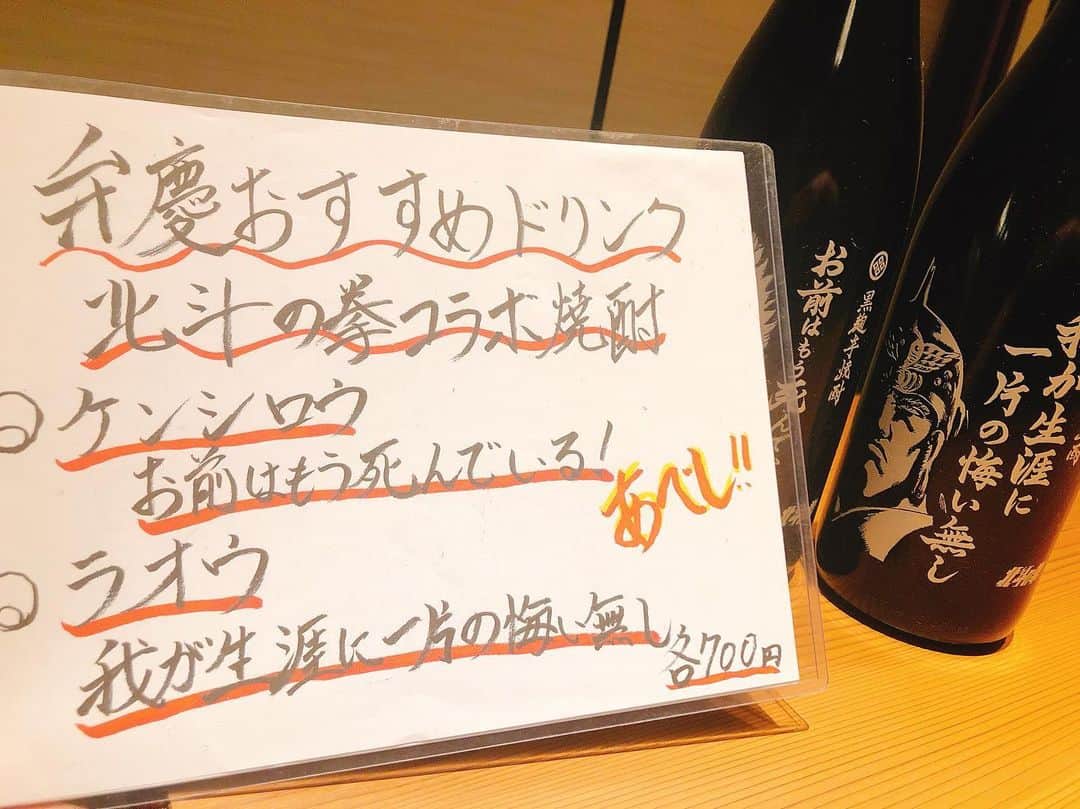 弁慶おすすめドリンク
北斗の拳コラボ焼酎
◎ケンシロウ
お前はもう死んでいる!
あべし!!
◎ラオウ
我が生涯に一片の悔い無し
各700円
黒麹芋焼酎
お前はもう死
我が生涯に
一片の悔い無し